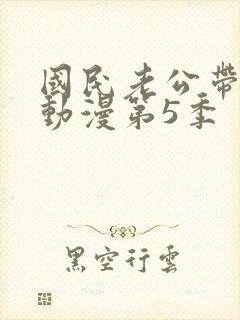 國民老公帶
動漫第5季
黑空行雲